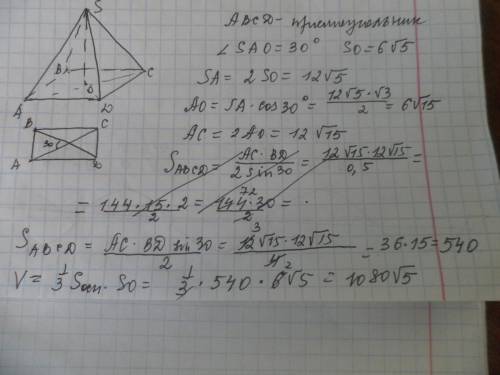 S
ABCD - прямоугольник
∠SAO = 30° SO = 6√5
SA = 2SO = 12√5
AO = SA · cos30° = 12√5 · √3 / 2 = 6√15
AC = 2AO = 12√15
S ABCD = AC · BD / 2 sin 30 = 12√15 · 12√15 / 0,5 =
= 144 · 15 · 2 / 2 = 144 · 30 / 2 = ·
72
S ABCD = AC · BD sin 30 / 2 = 12√15 · 12√15 / 4 = 36 · 15 = 540
3
V = 1/3 Sосн · SO = 1/3 · 540 · 6√5 = 1080√5
2
B C
O
A D
B C
30
A D